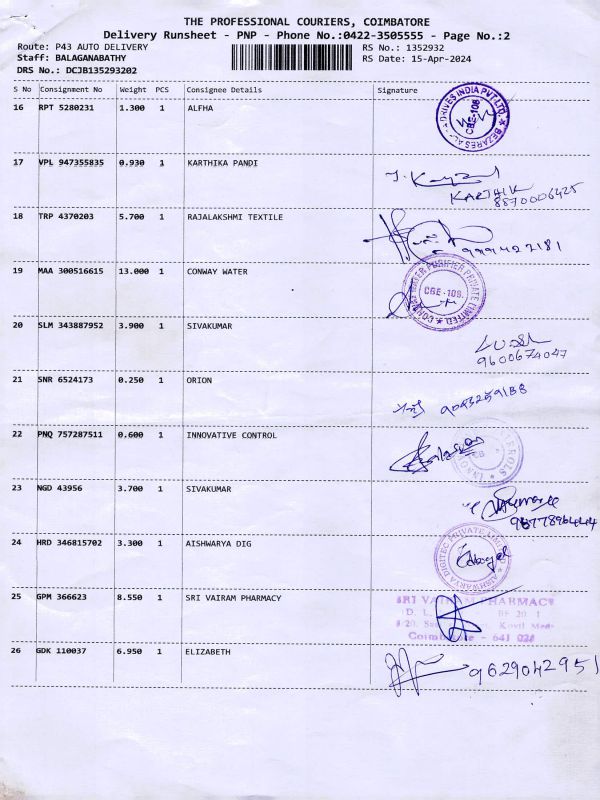 THE PROFESSIONAL COURIERS, COIMBATORE
Delivery Runsheet - PNP - Phone No.:0422-3505555 - Page No.:2
Route: P43 AUTO DELIVERY RS No.: 1352932
Staff: BALAGANABATHY RS Date: 15-Apr-2024
DRS No.: DCJB135293202
S No Consignment No Weight PCS Consignee Details Signature
16 RPT 5280231 1.300 1 ALFHA
DRIVES INDIA PVT.LTD. CBE-108
17 VPL 947355835 0.930 1 KARTHIKA PANDI
KARTHIK
8870006425
18 TRP 4370203 5.700 1 RAJALAKSHMI TEXTILE
19 MAA 300516615 13.000 1 CONWAY WATER
WATER PURIFIER PRIVATE LIMITED CBE-109.
20 SLM 343887952 3.900 1 SIVAKUMAR
9600674047
21 SNR 6524173 0.250 1 ORION
22 PNQ 757287511 0.600 1 INNOVATIVE CONTROL
23 NGD 43956 3.700 1 SIVAKUMAR
24 HRD 346815702 3.300 1 AISHWARYA DIG
AISHWARYA DIGITEC PRIVATE LIMITED
25 GPM 366623 8.550 1 SRI VAIRAM PHARMACY
SRI VAIRAM PHARMACY
Coimbatore - 641 028
26 GDK 110037 6.950 1 ELIZABETH
9629042951